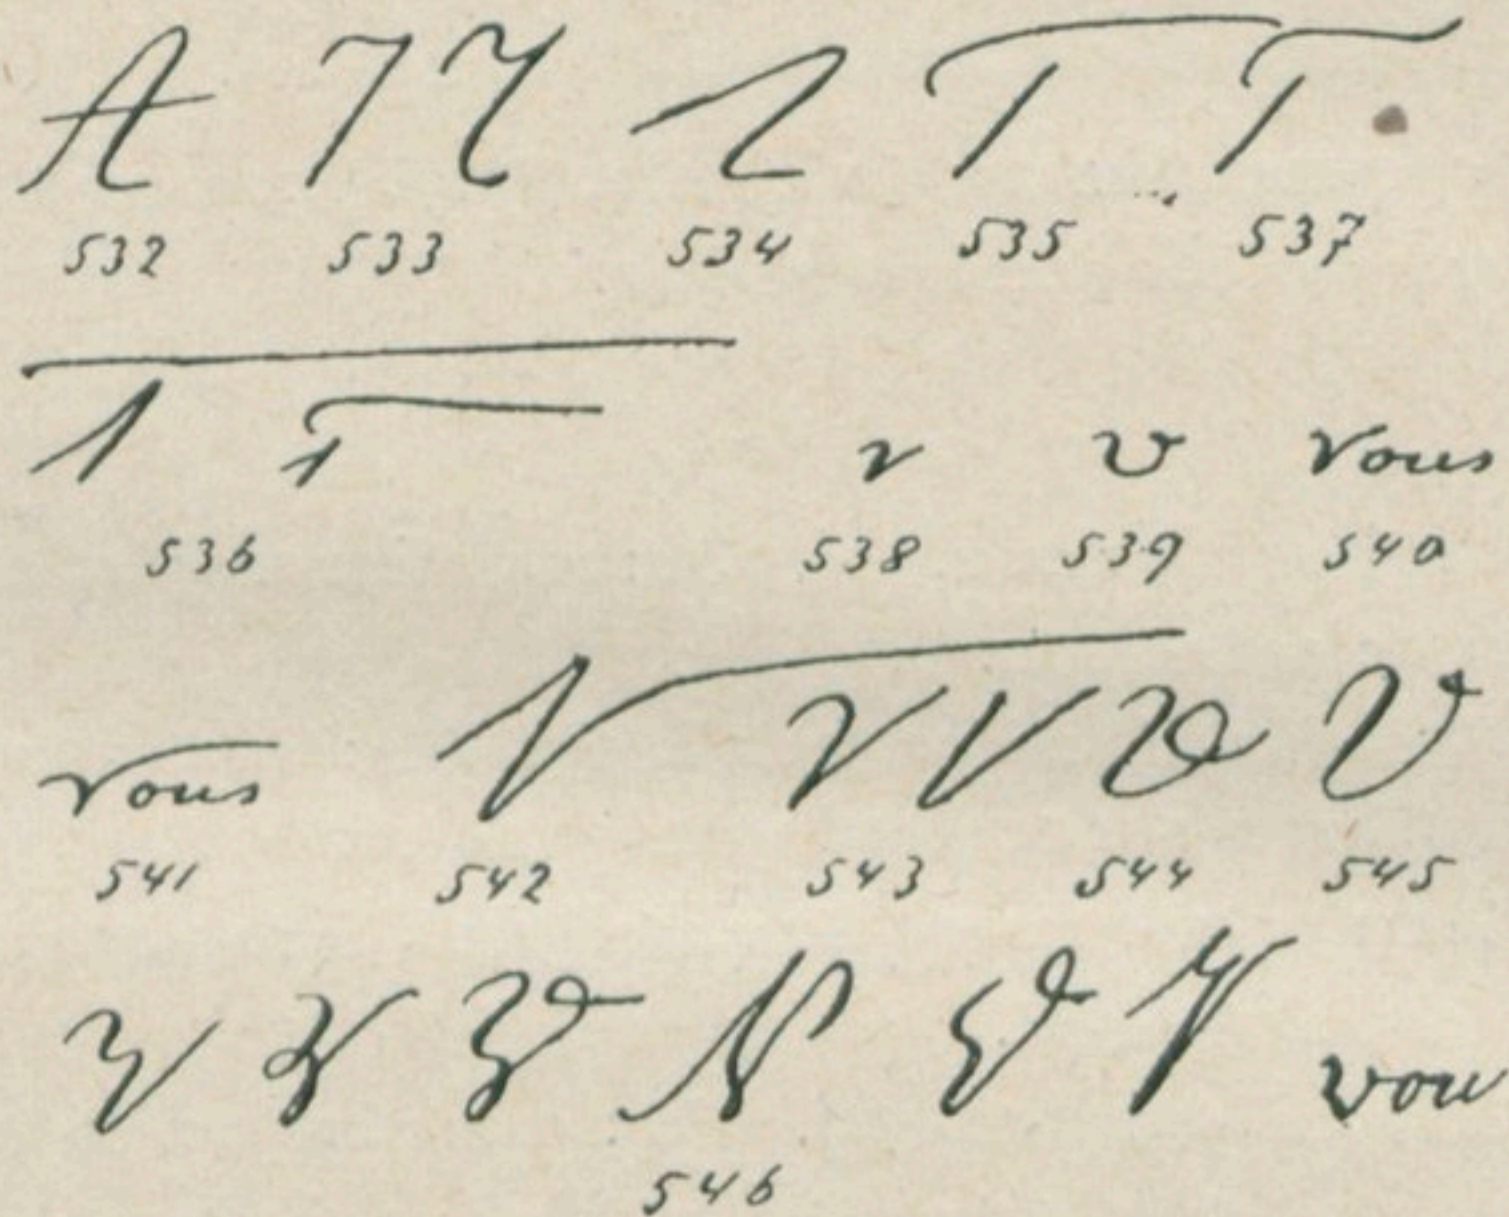 A T T T T T
532 533 534 535 537
T T v v vous
536 538 539 540
vous V V V V V
541 542 543 544 545
V V V V V V vou
546